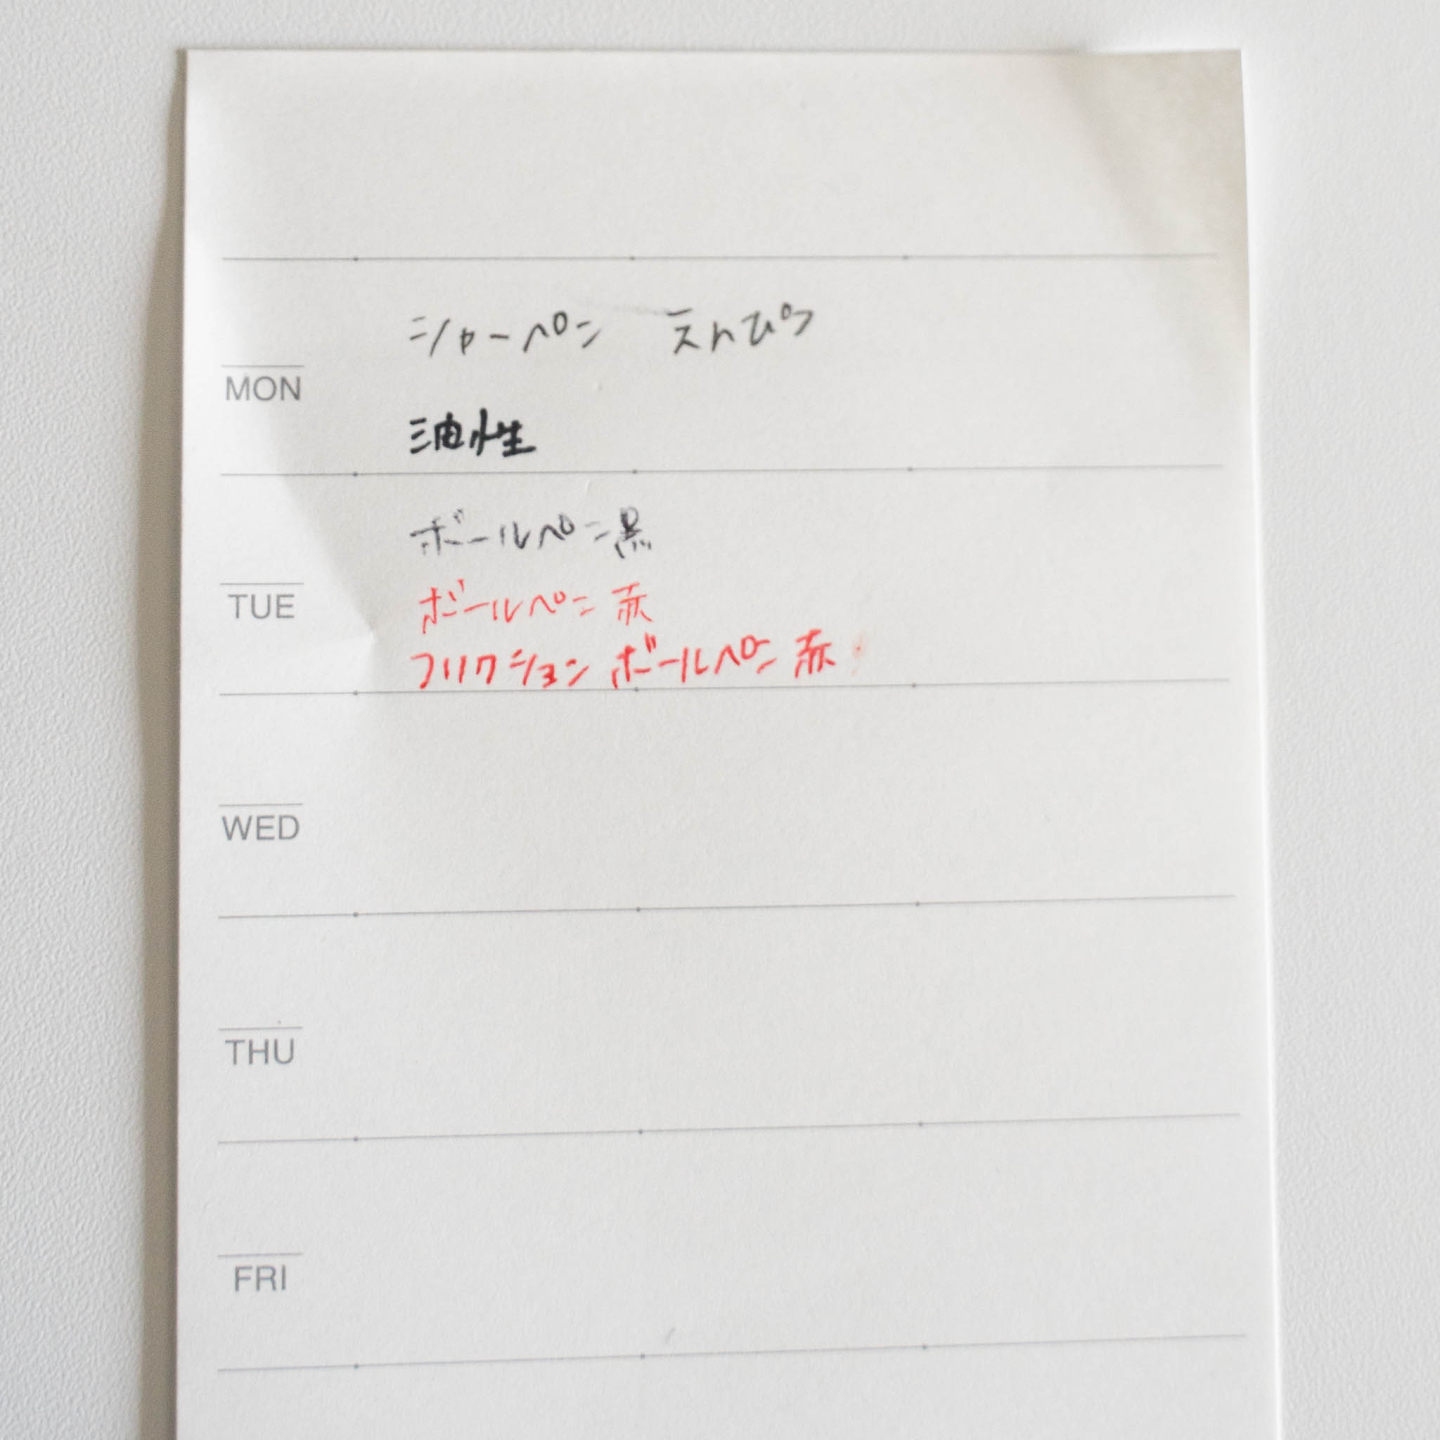 シャーペン えんぴつ
MON
油性
ボールペン黒
TUE
ボールペン 赤
フリクション ボールペン 赤
WED
THU
FRI